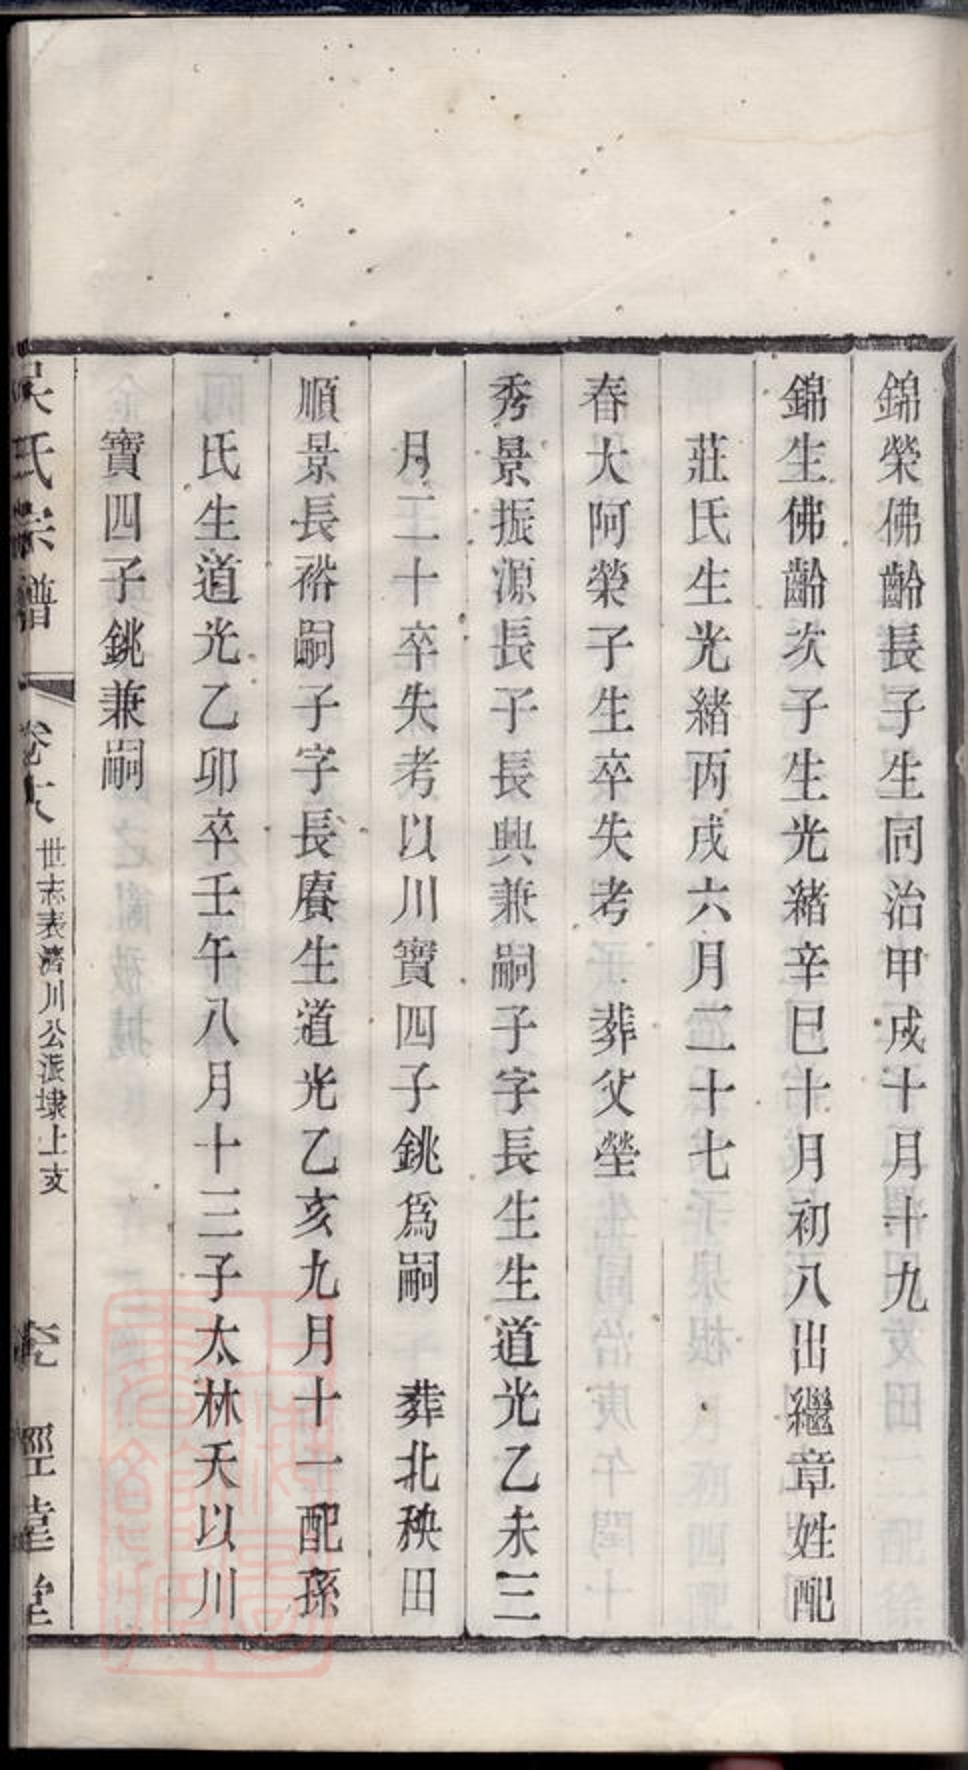 錦榮佛齡長子生同治甲戌十月十九
錦生佛齡次子生光緒辛巳十月初八出繼章姓配
莊氏生光緒丙戌六月二十七
春大阿榮子生卒失考　葬父塋
秀景振源長子長興兼嗣子字長生生道光乙未三
月二十卒失考以川寶四子銚爲嗣　葬北秧田
順景長裕嗣子字長賡生道光乙亥九月十一配孫
氏生道光乙卯卒壬午八月十三子太林夭以川
寶四子銚兼嗣
吳氏宗譜
卷大
世表濟川公派埭上支
經堂